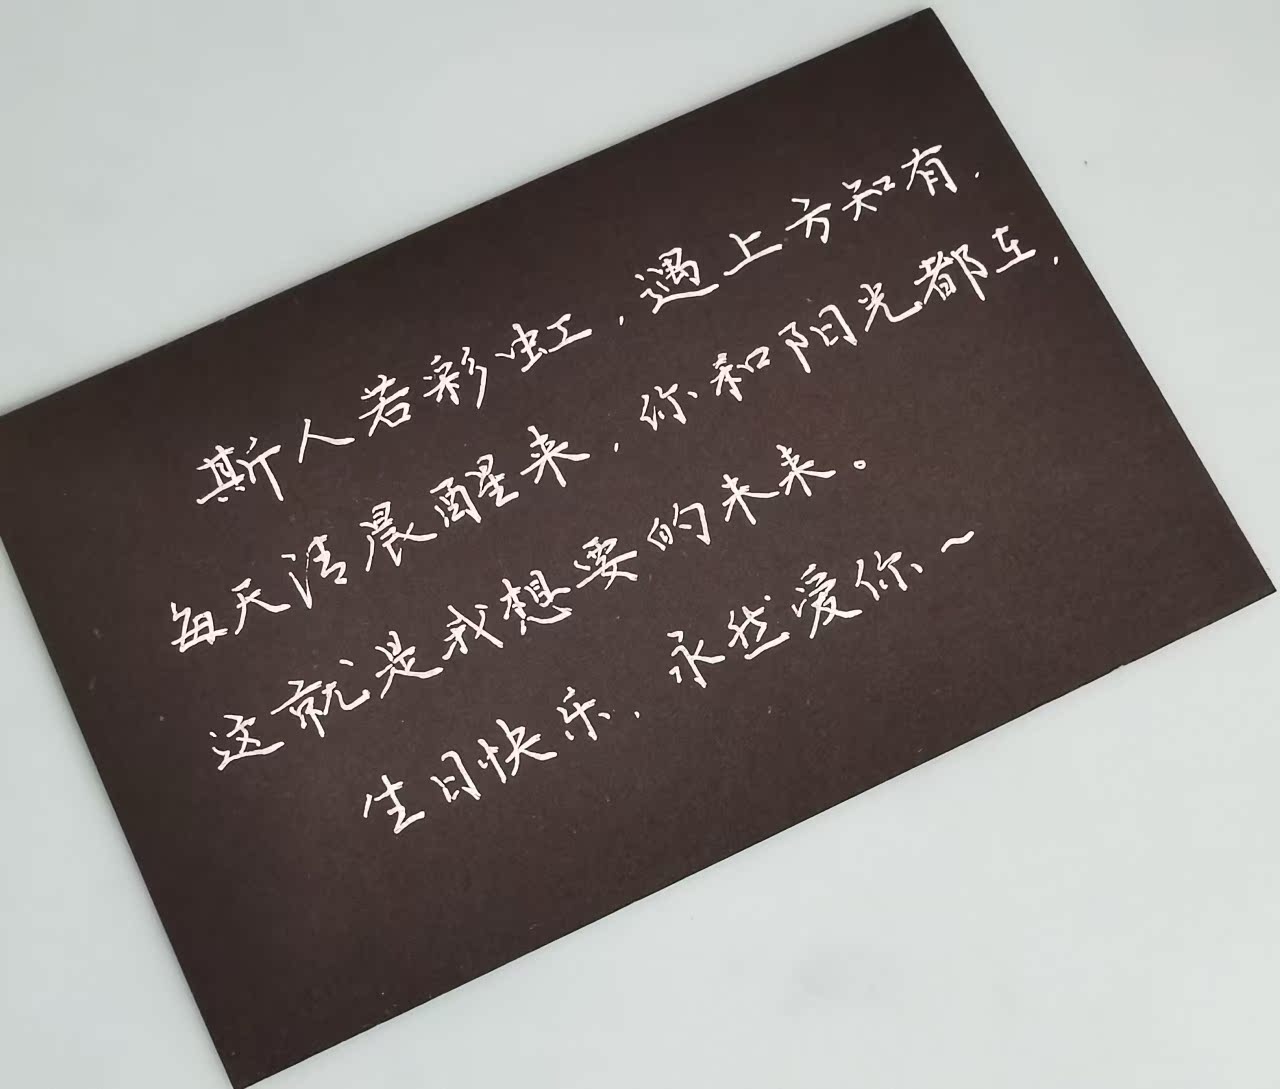 斯人若彩虹，遇上方知有．
每天清晨醒来，你和阳光都在，
这就是我想要的未来。
生日快乐，永然爱你～